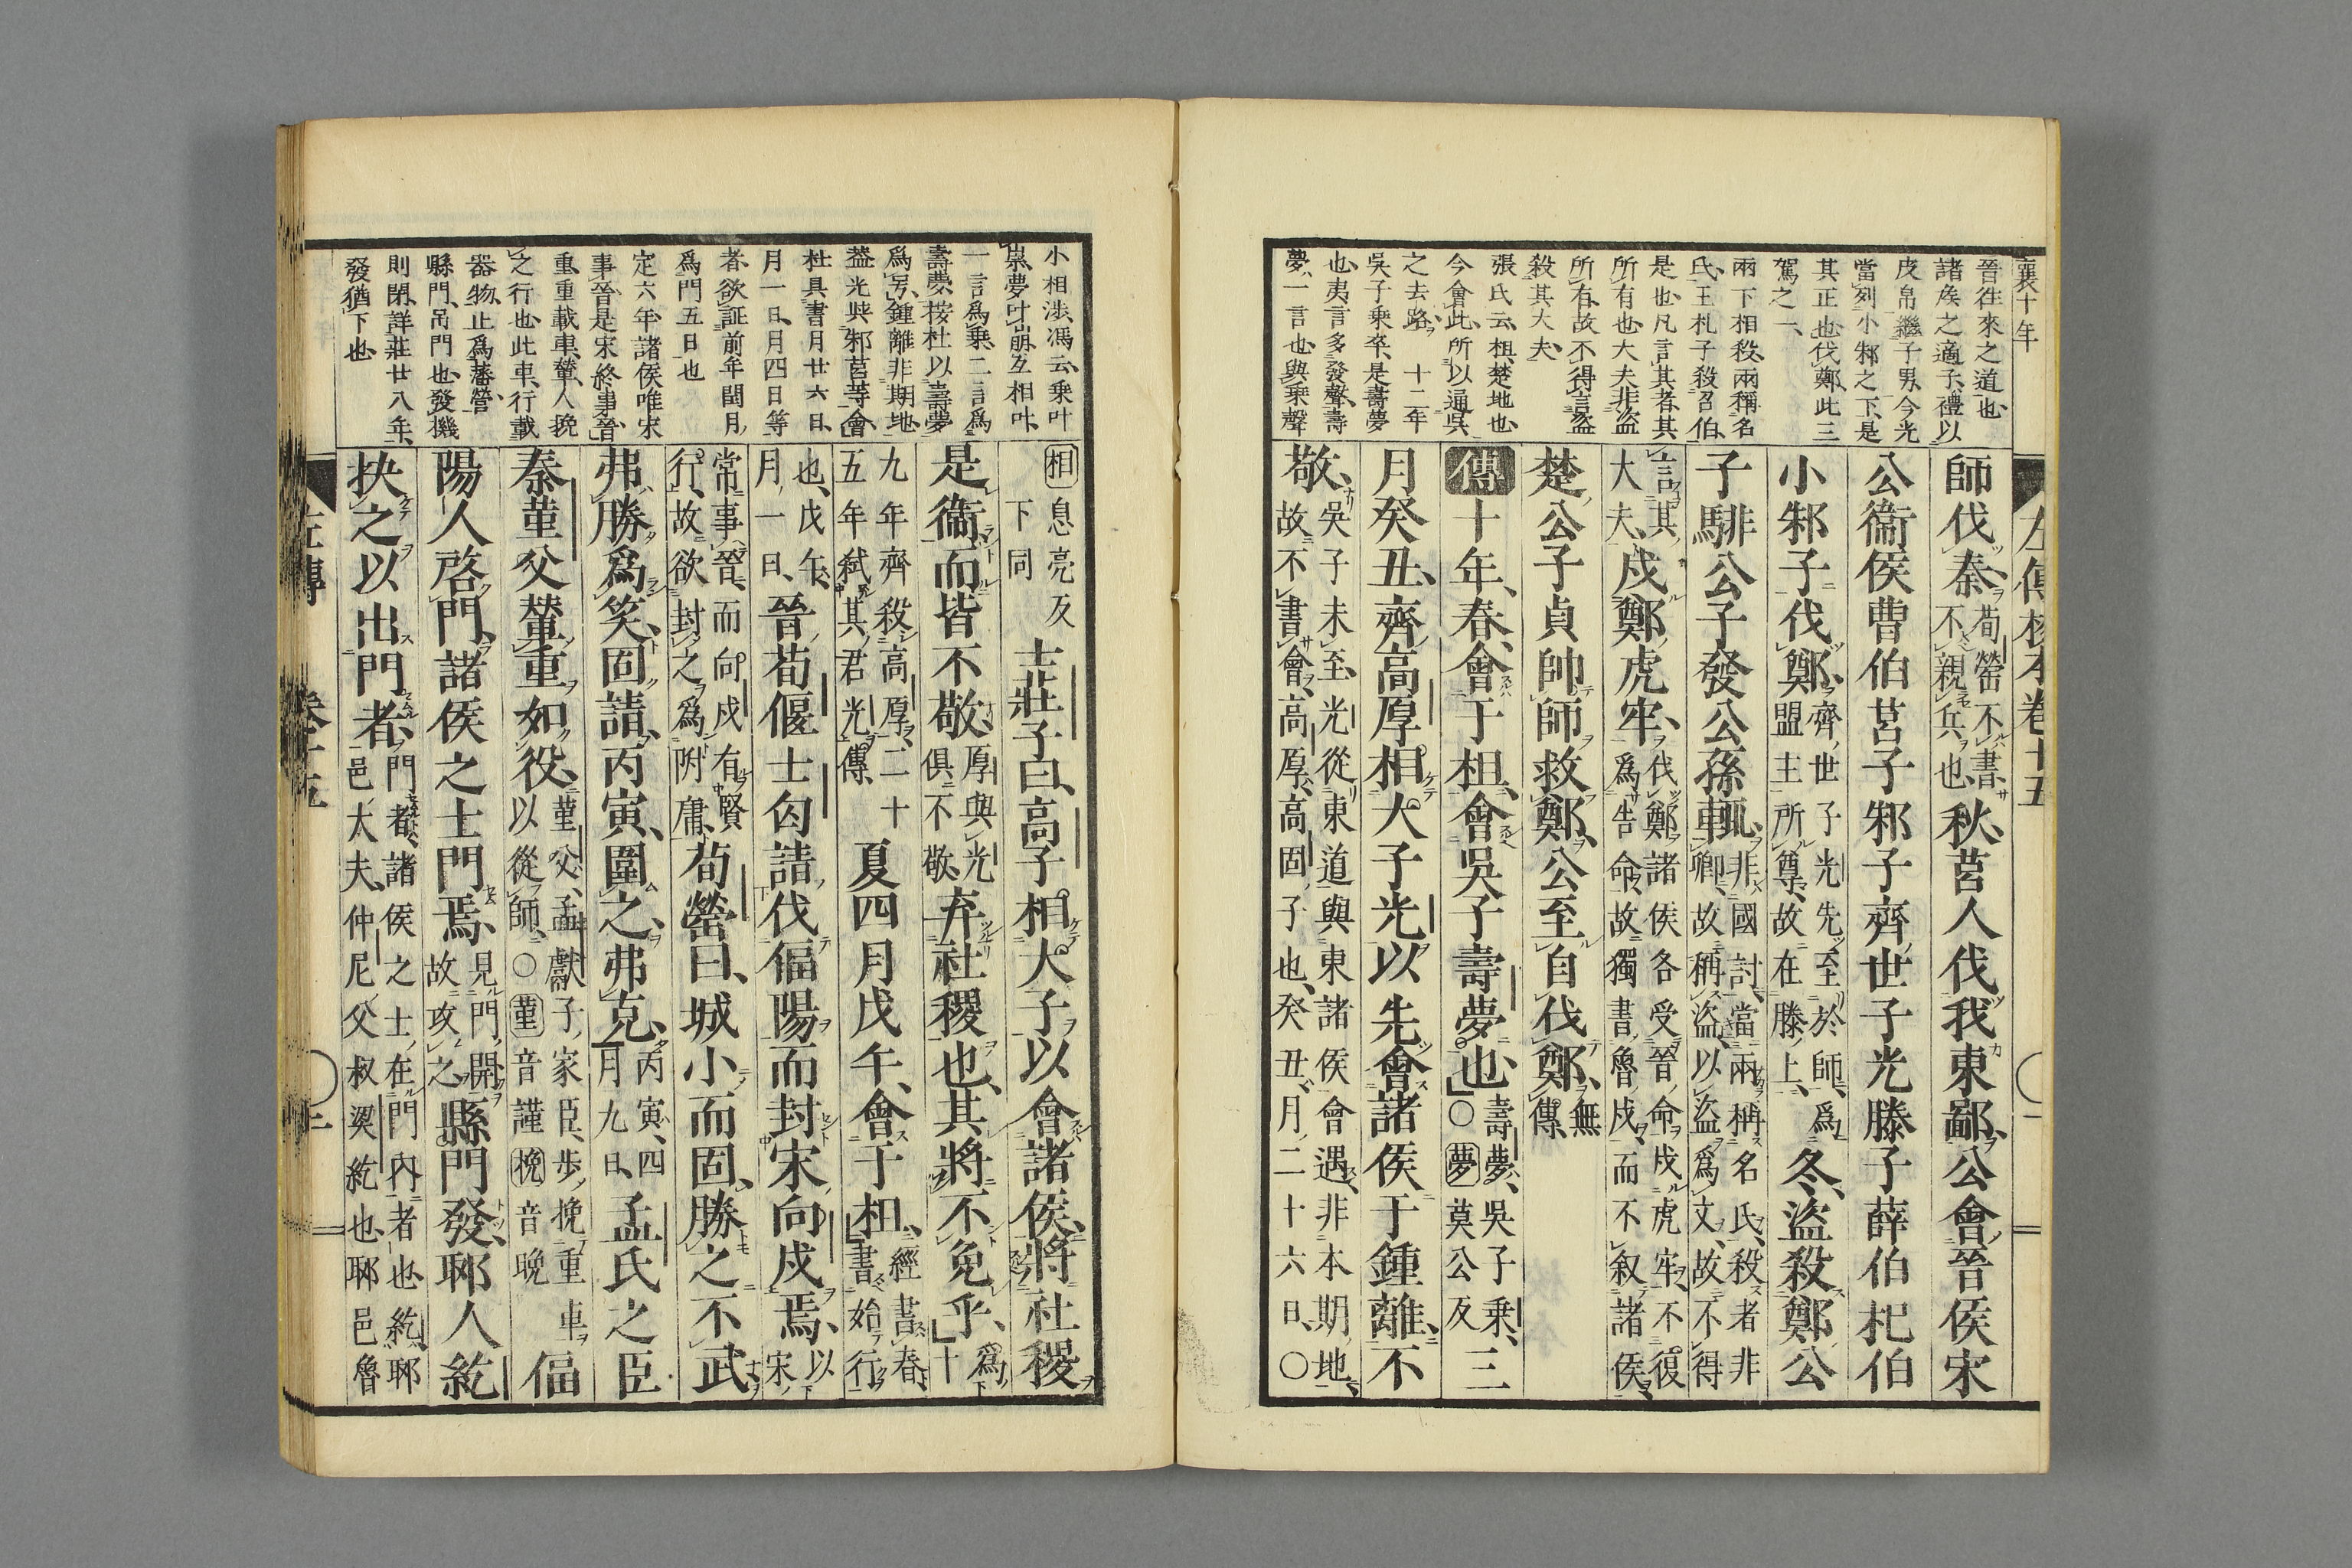 襄十年
左傳校本卷十五
晉往來之道也
諸矦之適子、禮以
皮帛繼子男、今光
當列小邾之下、是
其正也、伐鄭、此三
駕之一、
兩下相殺、兩稱名
氏、王札子殺召伯、
是也、凡言其者、其
所有也、大夫非盗
所有、故不得言盗
殺其大夫、
張氏云、柤、楚地也、
今會此、所以通吳
之去路、 十二年
吳子乗卒、是壽夢
也、夷言多發聲、壽
夢、一言也、與乗聲
師伐秦、荀罃不書、不親兵也、秋、莒人伐我東鄙、公會晉侯宋
公衞侯曹伯莒子邾子齊世子光滕子薛伯杞伯
小邾子伐鄭、齊世子光先至於師、爲盟主所尊、故在滕上、冬、盜殺鄭公
子騑公子發公孫輒、非國討、當兩稱名氏、殺者非卿、故稱盗、以盗爲文、故不得
言其大夫、戍鄭虎牢、伐鄭諸侯各受晉命戍虎牢、不復爲告命、故獨書魯戍、而不叙諸侯、
楚公子貞帥師救鄭、公至自伐鄭、無傳、
傳十年、春、會于柤、會吳子壽夢也、壽夢、吳子乗、○夢莫公反 三
月癸丑、齊高厚相大子光以先會諸侯于鍾離、不
敬、吳子未至、光從東道與東諸侯會遇、非本期地、故不書會、高厚、高固子也、癸丑、月二十六日、○
小相涉、馮云、乗叶
崇、夢叶萠、互相叶、
一言爲乗、二言爲
壽夢、按杜以壽夢
爲号、鍾離非期地、
葢光與邾莒等會
杜具書月廿六日、
月一日、月四日等
者、欲証前年閏月、
爲門五日也
定六年、諸侯唯宋
事晉、是宋終事晉
重、重載車、輦、人挽
之行也、此車、行載
器物、止爲藩營、
縣門、吊門也、發機
則閉、詳莊廿八年、
發猶下也
相息亮反下同 士莊子曰、高子相大子以會諸侯、將社稷
是衞、而皆不敬、厚與光俱不敬、弃社稷也、其將不免乎、爲十
九年齊殺高厚、二十五年弑其君光傳、夏四月戊午、會于柤、經書春、書始行
也、戊午、月一日、晉荀偃士匄請伐偪陽而封宋向戌焉、以宋
常事晉、而向戌有賢行、故欲封之爲附庸、荀罃曰、城小而固、勝之不武、
弗勝爲笑、固請、丙寅、圍之、弗克、丙寅、四月九日、孟氏之臣
秦堇父輦重如役、堇父、孟獻子家臣、步挽重車以從師、○堇音謹挽音晚 偪
陽人啓門、諸侯之士門焉、見門開、故攻之、縣門發、郰人紇
抉之以出門者、門者、諸侯之士在門內者也、紇、郰邑大夫、仲尼父叔梁紇也、郰邑魯
左傳 卷十五